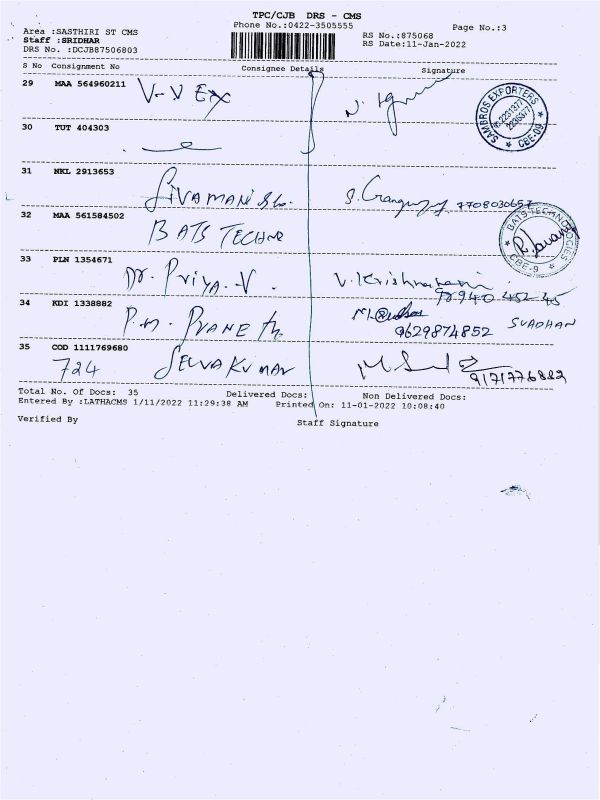 TPC/CJB DRS - CMS
Phone No.:0422-3505555
Page No.:3
Area :SASTHIRI ST CMS
Staff :SRIDHAR
DRS No. :DCJB87506803
RS No.:875068
RS Date:11-Jan-2022
S No Consignment No Consignee Details Signature
29 MAA 564960211 V-V Ex
SAMBROS EXPORTERS
CBE-09
30 TUT 404303
31 NKL 2913653
SIVAMANI 7708030657
32 MAA 561584502
BATS TECHNO
BATS TECHNOLOGIES
CBE-9
33 PLN 1354671
Dr. PRIYA.V. V.Krishnaveni
98940 452 45
34 KDI 1338882
P.M. PRANETH
9629874852
35 COD 1111769680
724 SELVAKUMAR
9171776882
Total No. Of Docs: 35 Delivered Docs: Non Delivered Docs:
Entered By :LATHACMS 1/11/2022 11:29:38 AM Printed On: 11-01-2022 10:08:40
Verified By Staff Signature